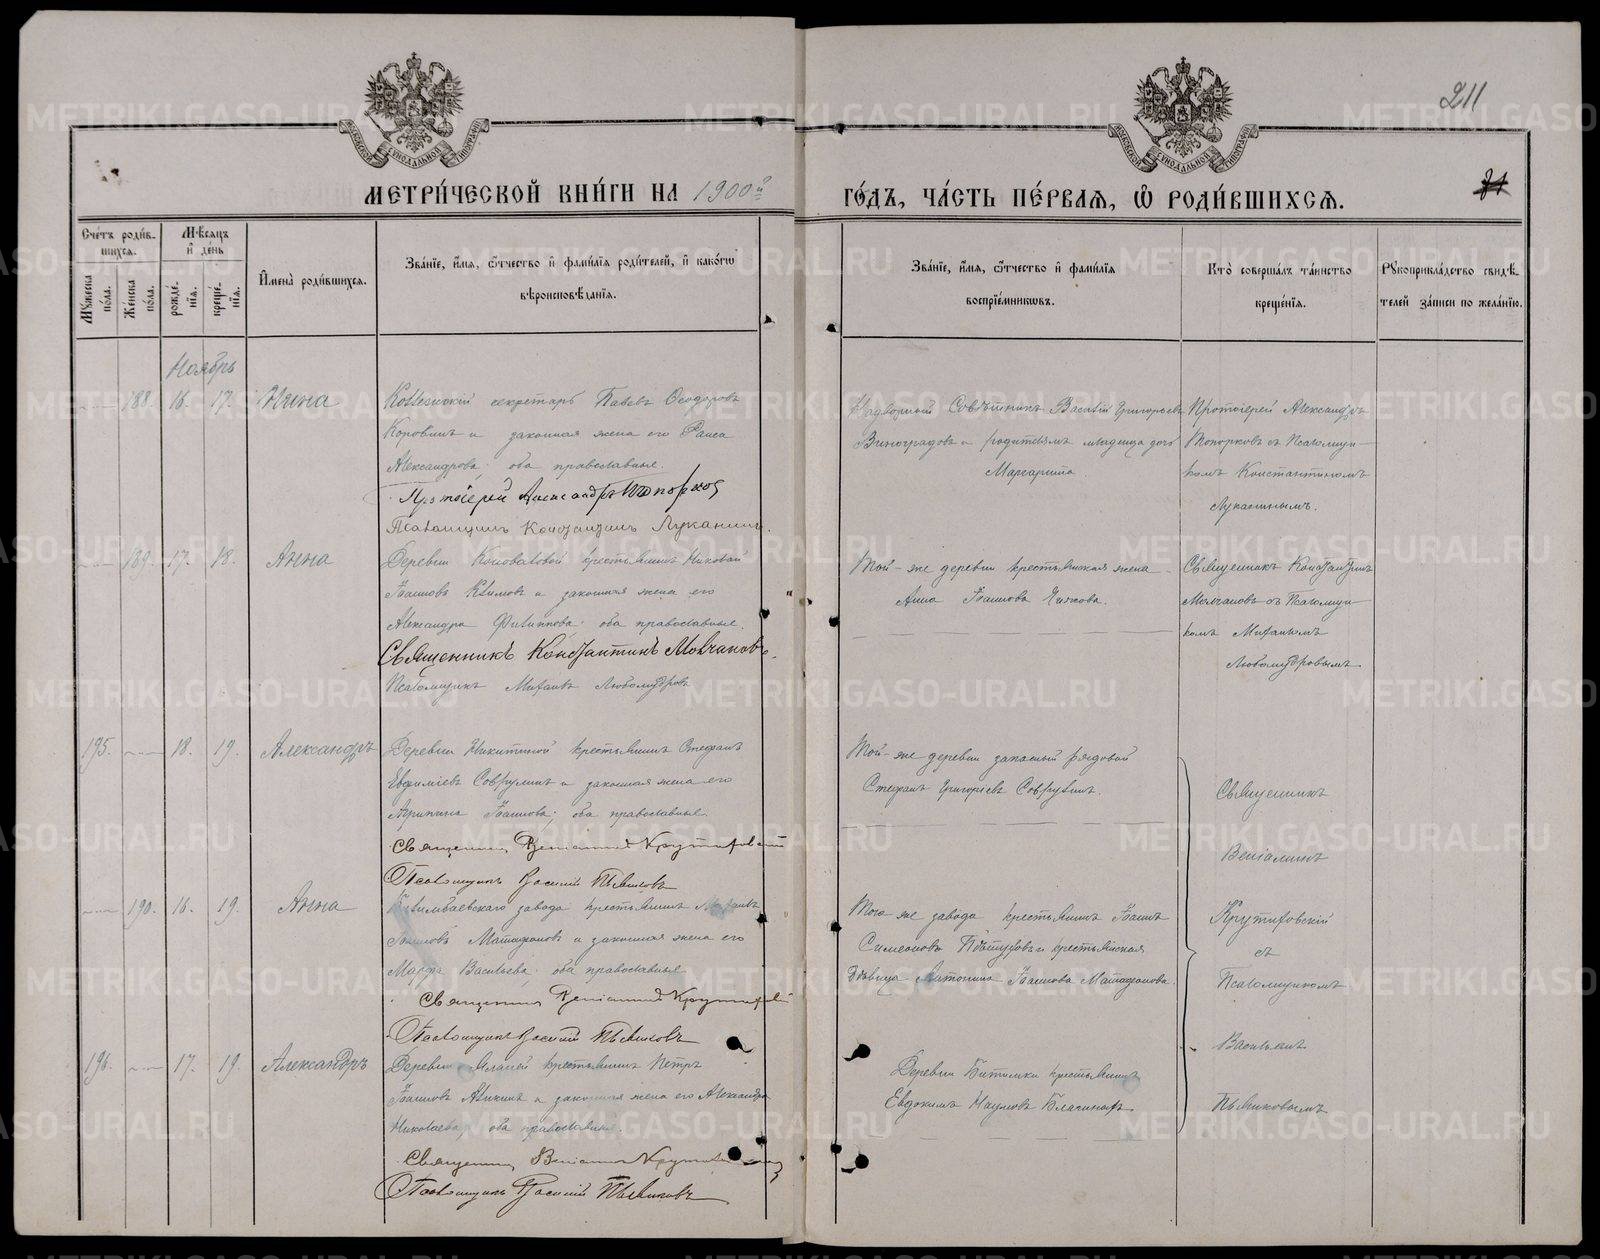 211
МОСКОВСКОЙ СѴНОДАЛЬНОЙ ТИПОГРАФІИ
МЕТРИ́ЧЕСКОЙ КНИ́ГИ НА 1900й
ГО́ДЪ, ЧА́СТЬ ПЕ́РВАѦ, Ѡ РОДИ́ВШИХСѦ.
Сче́тъ роди́в-
шихсѧ.
Мꙋ́жеска
по́ла.
Же́нска
по́ла.
Мѣ́сѧцъ
и҆ де́нь
рожде́-
нїѧ.
креще́-
нїѧ.
И҆мена̀ роди́вшихсѧ.
Зва́нїе, и҆́мѧ, ѻ҆́тчество и҆ фами́лїѧ роди́телей, и҆ како́гѡ
вѣроисповѣ́данїѧ.
Зва́нїе, и҆́мѧ, ѻ҆́тчество и҆ фами́лїѧ
воспрїе́мникѡвъ.
Кто̀ соверша́лъ та́инство
креще́нїѧ.
Рꙋкоприкла́дство свидѣ́-
телей за́писи по жела́нїю.
Ноябрь
188. 16. 17. Нина
Коллежскій секретарь Павелъ Ѳеодоровъ
Коровинъ и законная жена его Раиса
Александрова; оба православные.
Протоіерей Александръ Топорковъ
Псаломщикъ Константинъ Луканинъ.
Надворный Совѣтникъ Василій Григорьевъ
Виноградовъ и родителямъ младенца дочь
Маргарита
Протоіерей Александръ
Топорковъ съ Псаломщи-
комъ Константиномъ
Луканинымъ.
189. 17. 18. Анна
Деревни Коноваловой крестьянинъ Николай
Іоанновъ Климовъ и законная жена его
Александра Филиппова; оба православные.
Священникъ Константинъ Молчановъ.
Псаломщикъ Михаилъ Любомудровъ
Той-же деревни крестьянская жена
Анна Іоаннова Чижова.
Священникъ Константинъ
Молчановъ съ Псаломщи-
комъ Михаиломъ
Любомудровымъ
195. 18. 19. Александръ
Деревни Никитиной крестьянинъ Стефанъ
Евфиміевъ и законная жена его
Агрипина Іоаннова; оба православные
Священникъ Веніаминъ Крутиховскій
Псаломщикъ Василій Пьянковъ
Той-же деревни запасный рядовой
Стефанъ Григорьевъ
Священникъ
Веніаминъ
Крутиховскій
съ
Псаломщикомъ
Василіемъ
Пьянковымъ
190. 16. 19. Анна
Билимбаевскаго завода крестьянинъ
Іоанновъ Матафоновъ и законная жена его
Марѳа Васильева; оба православные
Священникъ Веніаминъ Крутиховскій
Псаломщикъ Василій Пьянковъ
Того же завода крестьянинъ Іоаннъ
Симеоновъ и крестьянская
дѣвица Антонина Іоаннова Матафонова.
196. 17. 19. Александръ
Деревни крестьянинъ Петръ
Іоанновъ и законная жена его Александра
Николаева; оба православные.
Священникъ Веніаминъ Крутиховскій
Псаломщикъ Василій Пьянковъ
Деревни Битимки крестьянинъ
Евдокимъ Наумовъ